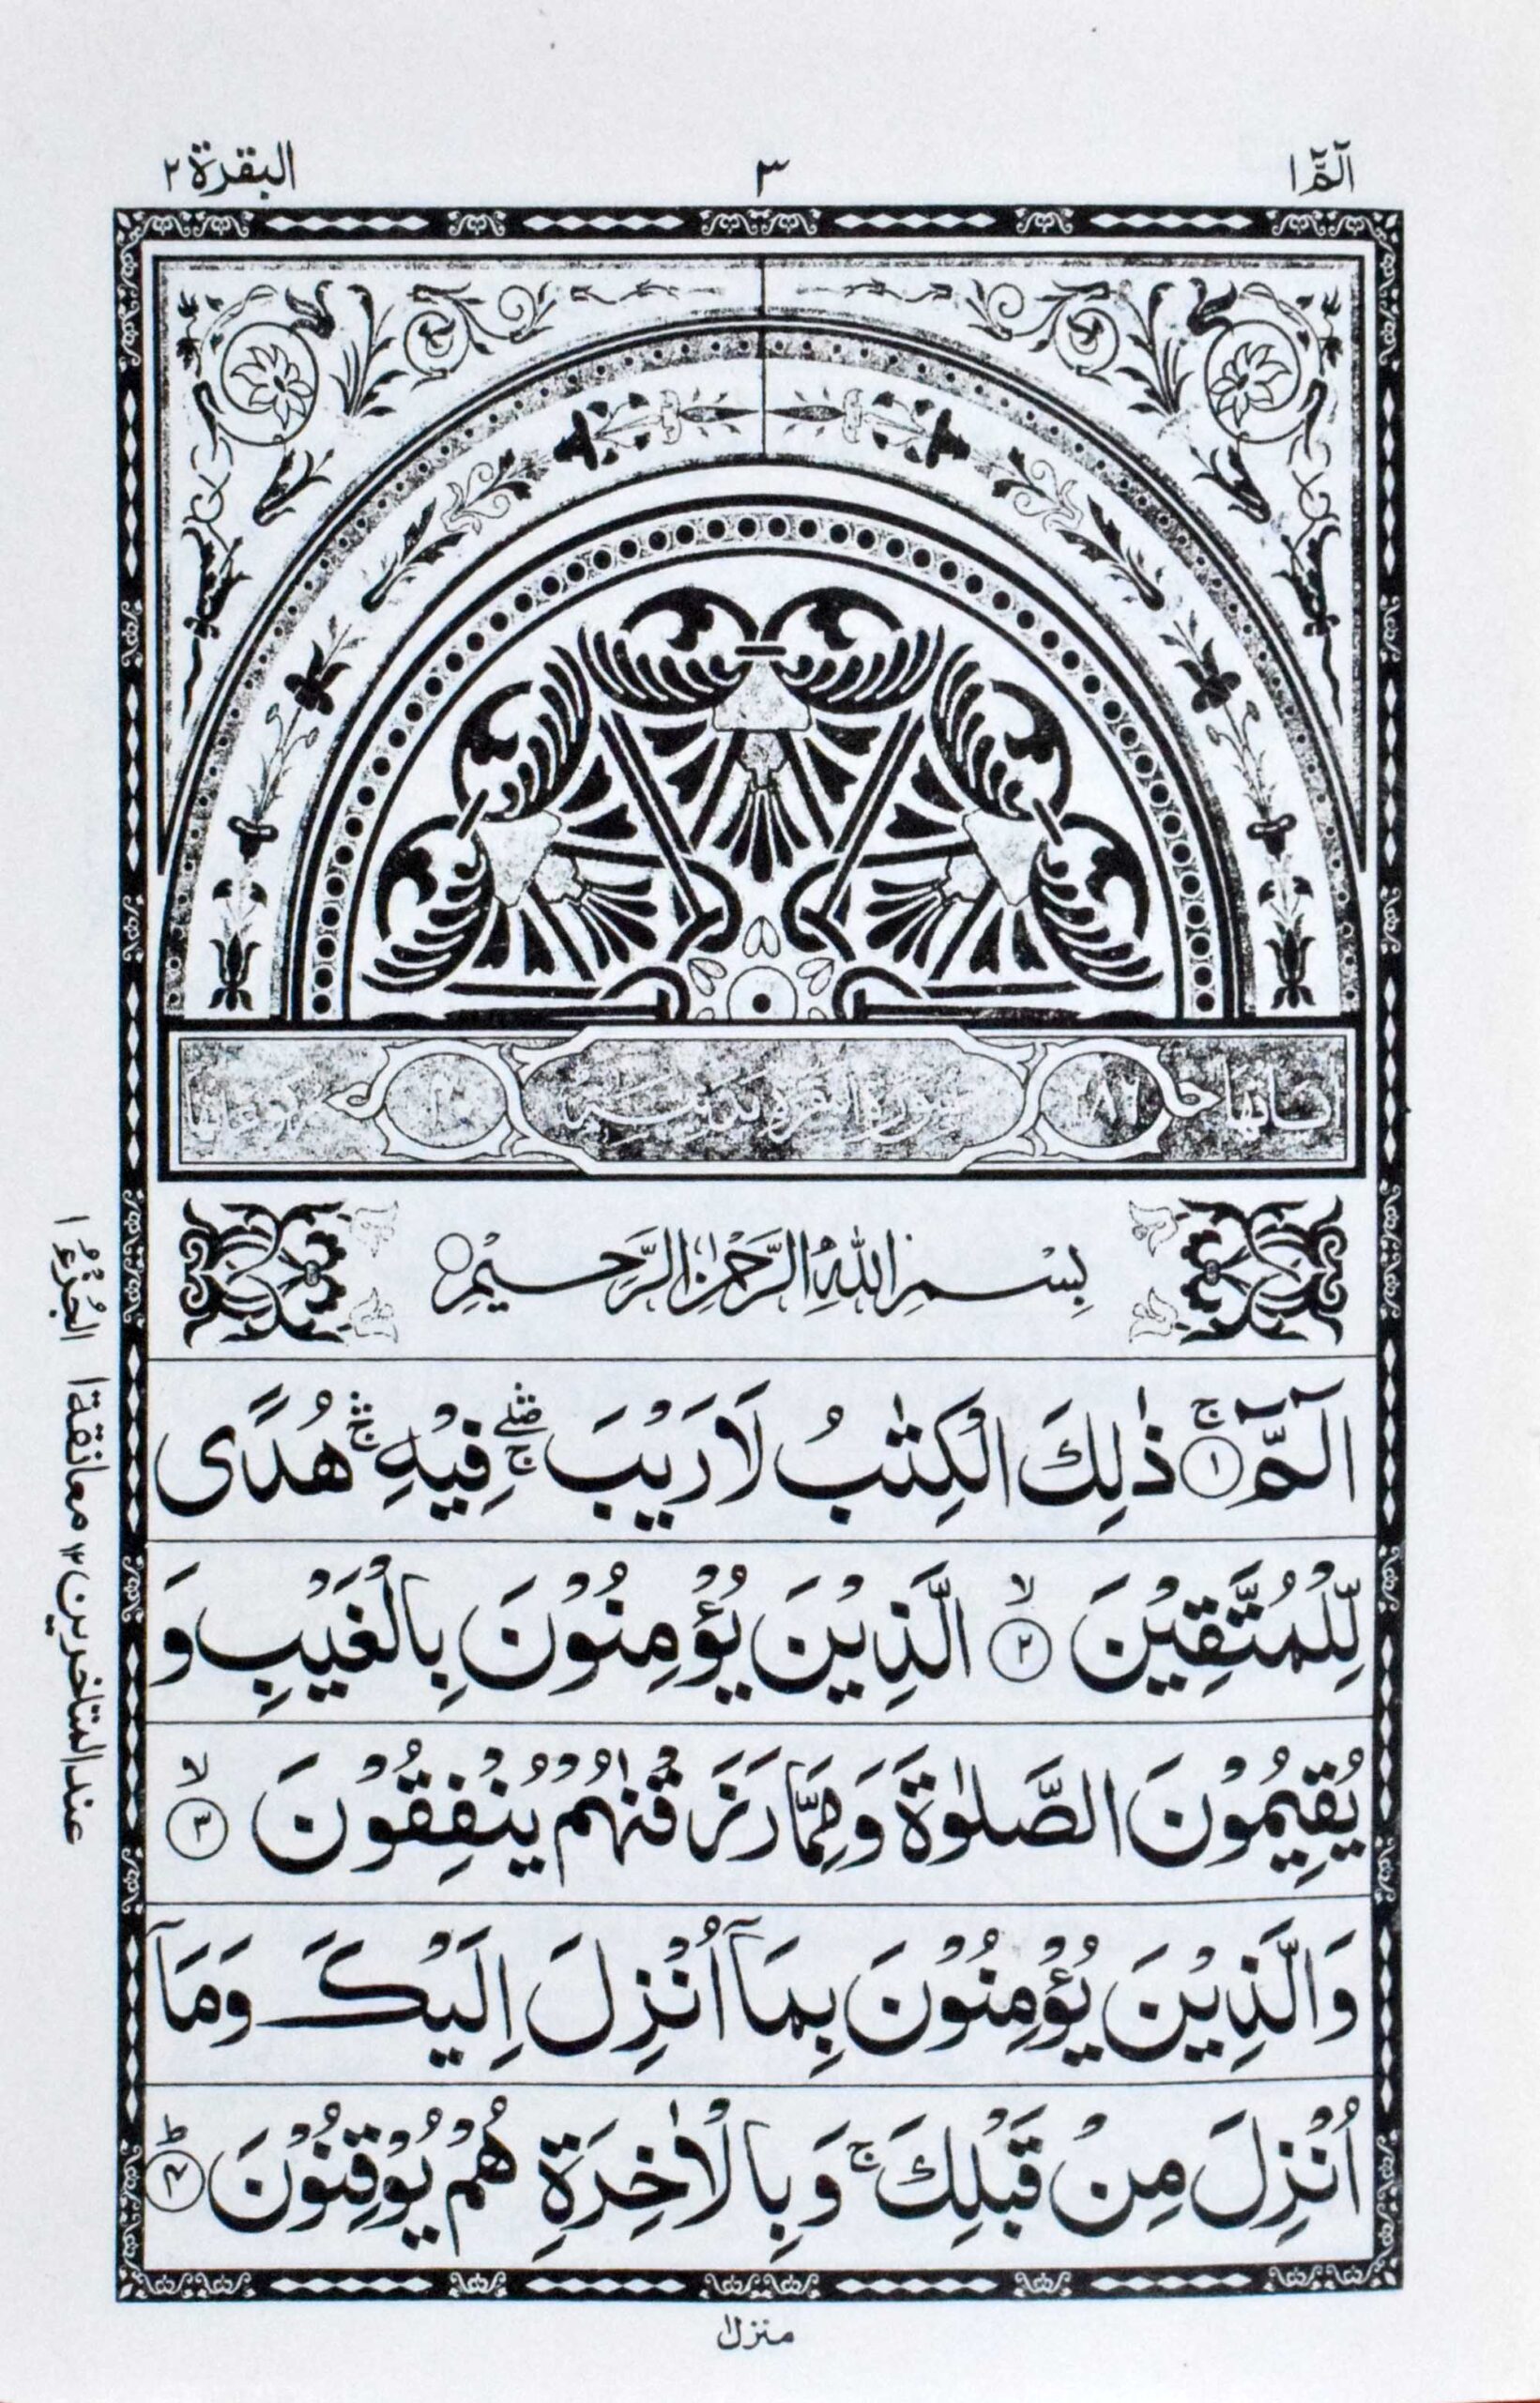 الٓمّٓ ١
٣
البقرة ٢
اٰیاتها ٢٨٦ سُوْرَةُ الْبَقَرَةِ مَدَنِيَّةٌ ٤٠ رکوعاتها
بِسْمِ اللّٰهِ الرَّحْمٰنِ الرَّحِيْمِ ○
الٓمّٓ ۚ﴿١﴾ ذٰلِكَ الْكِتٰبُ لَا رَيْبَ ۛۖۚ فِيْهِ ۛۚ هُدًى
لِّلْمُتَّقِيْنَ ۙ﴿٢﴾ الَّذِيْنَ يُؤْمِنُوْنَ بِالْغَيْبِ وَ
يُقِيْمُوْنَ الصَّلٰوةَ وَمِمَّا رَزَقْنٰهُمْ يُنْفِقُوْنَ ۙ﴿٣﴾
وَالَّذِيْنَ يُؤْمِنُوْنَ بِمَآ اُنْزِلَ اِلَيْكَ وَمَآ
اُنْزِلَ مِنْ قَبْلِكَ ۚ وَبِالْاٰخِرَةِ هُمْ يُوْقِنُوْنَ ؕ﴿٤﴾
منزل ١
الجُزْءُ ١
معانقة ١
عند المتاخرين ١٢